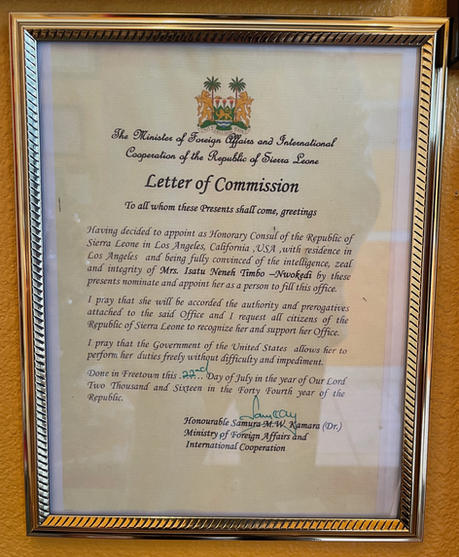 The Minister of Foreign Affairs and International
Cooperation of the Republic of Sierra Leone
Letter of Commission
To all whom these Presents shall come, greetings
Having decided to appoint as Honorary Consul of the Republic of
Sierra Leone in Los Angeles, California ,USA ,with residence in
Los Angeles and being fully convinced of the intelligence, zeal
and integrity of Mrs. Isatu Neneh Timbo –Nwokedi by these
presents nominate and appoint her as a person to fill this office.
I pray that she will be accorded the authority and prerogatives
attached to the said Office and I request all citizens of the
Republic of Sierra Leone to recognize her and support her Office.
I pray that the Government of the United States allows her to
perform her duties freely without difficulty and impediment.
Done in Freetown this .22nd.. Day of July in the year of Our Lord
Two Thousand and Sixteen in the Forty Fourth year of the
Republic.
Honourable Samura M.W. Kamara (Dr.)
Ministry of Foreign Affairs and
International Cooperation